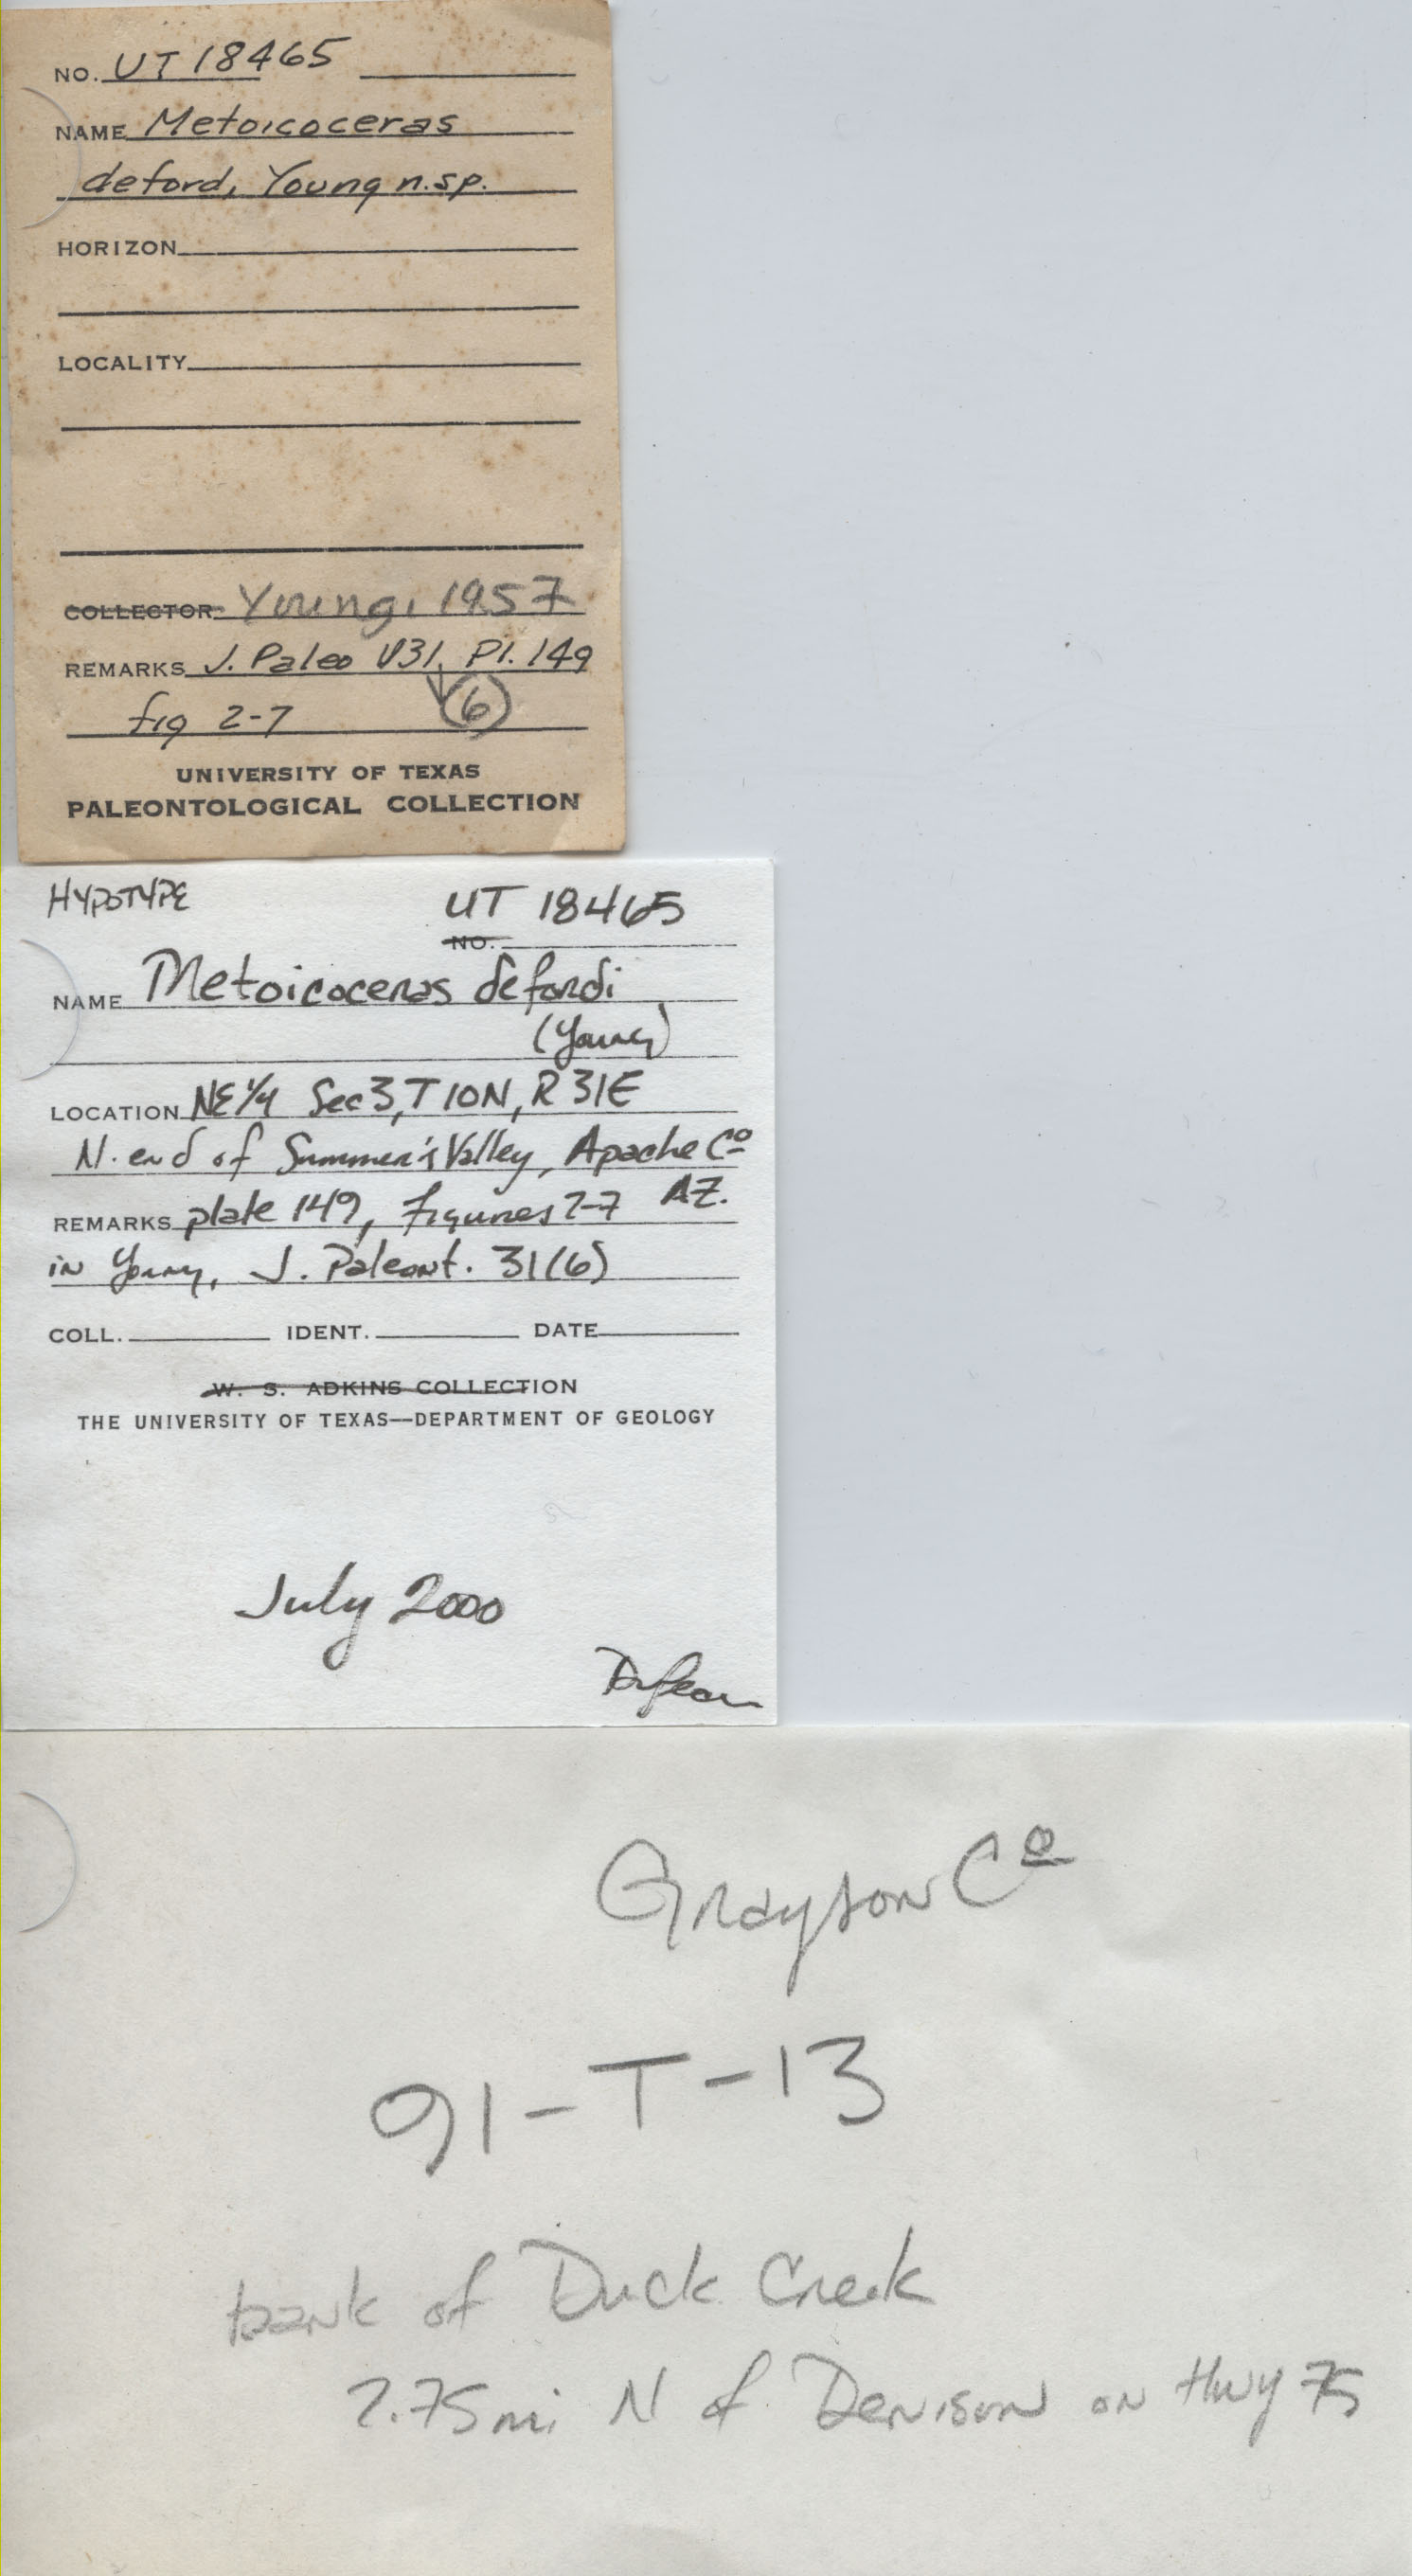 NO. UT 18465
NAME Metoicoceras
defordi Young n.sp.
HORIZON
LOCALITY
COLLECTOR Young, 1957
REMARKS J. Paleo V31, Pl. 149
fig 2-7 6
UNIVERSITY OF TEXAS
PALEONTOLOGICAL COLLECTION
HYPOTYPE UT 18465
NO.
NAME Metoicoceras defordi
(Young)
LOCATION NE 1/4 Sec 3, T10N, R31E
N. end of Summer's Valley, Apache Co
AZ.
REMARKS plate 149, figures 2-7
in Young, J. Paleont. 31(6)
COLL. IDENT. DATE
W. S. ADKINS COLLECTION
THE UNIVERSITY OF TEXAS—DEPARTMENT OF GEOLOGY
July 2000
Grayson Co
91-T-13
bank of Duck Creek
2.75 mi N of Denison on Hwy 75